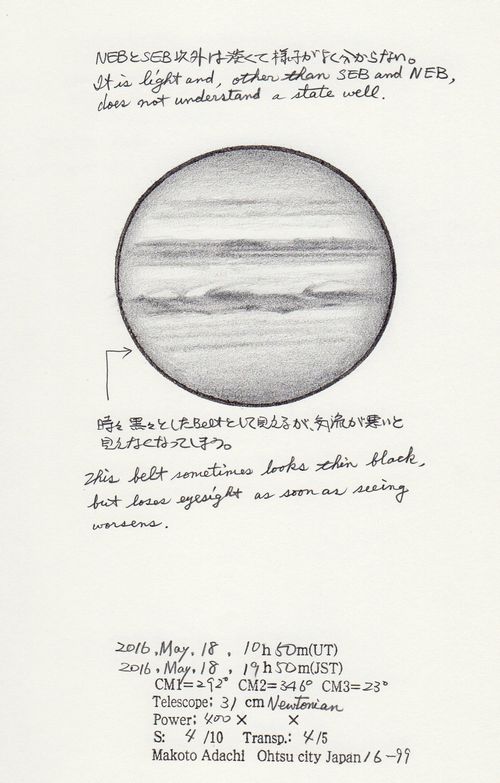 NEBとSEB以外は淡くて様子がよく分からない。
It is light and, other than SEB and NEB,
does not understand a state well.
時々 黒々としたBeltとして見えるが、気流が悪いと
見えなくなってしまう。
This belt sometimes looks thin black,
but loses eyesight as soon as seeing
worsens.
2016, May, 18, 10h50m(UT)
2016, May, 18, 19h50m(JST)
CM1=292° CM2=346° CM3=23°
Telescope; 31 cm Newtonian
Power; 400× ×
S: 4/10 Transp.; 4/5
Makoto Adachi Ohtsu city Japan 16-99